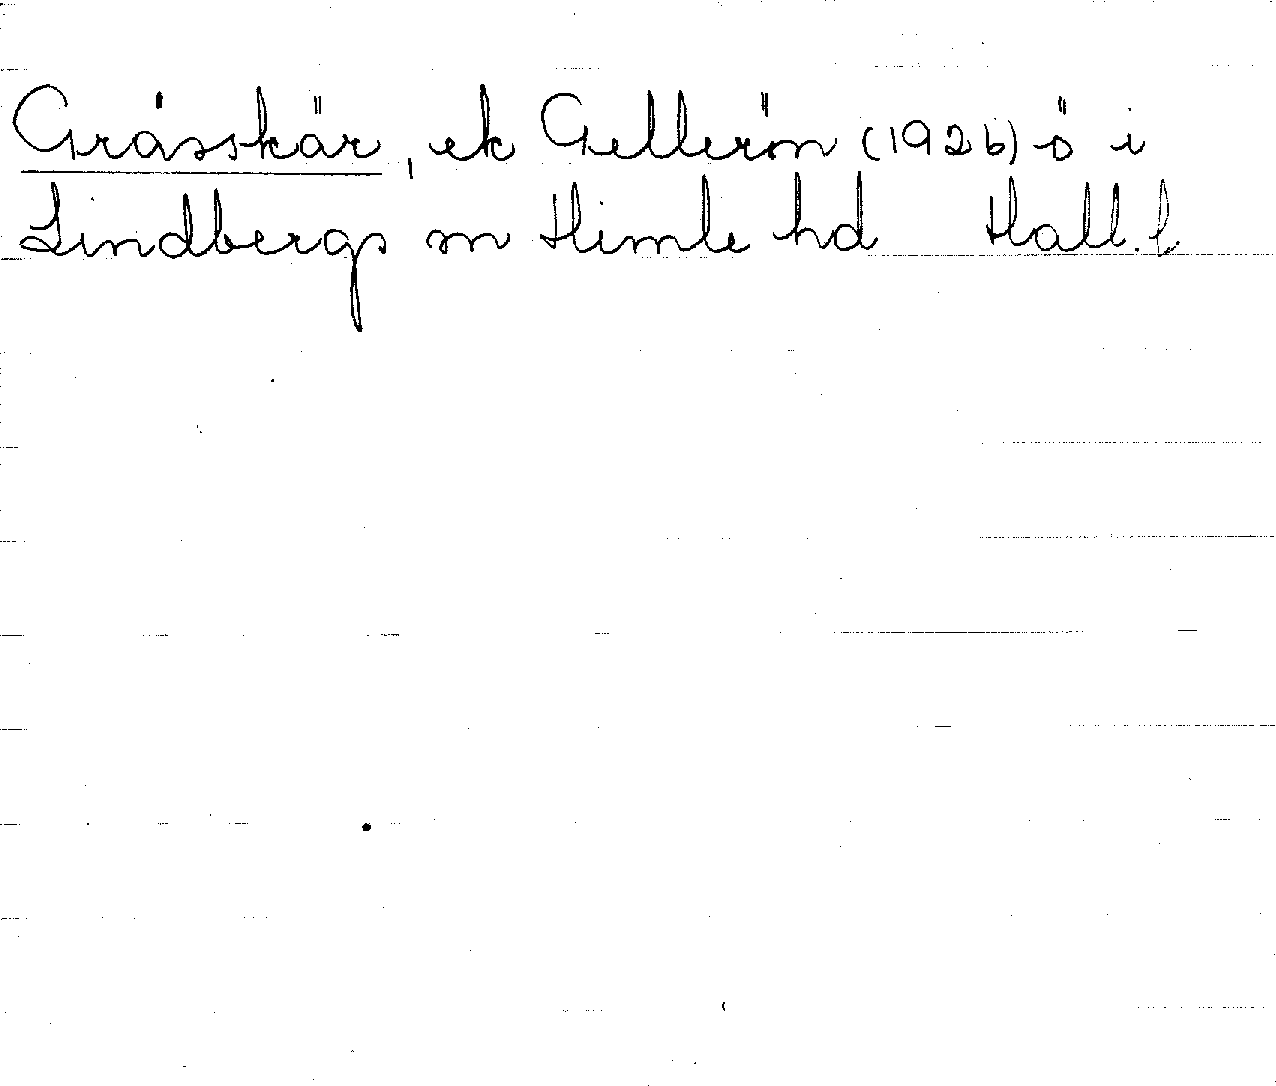 Gråsskär, ek Gellerön (1926) ö i
Lindbergs sn Himle hd Hall. l